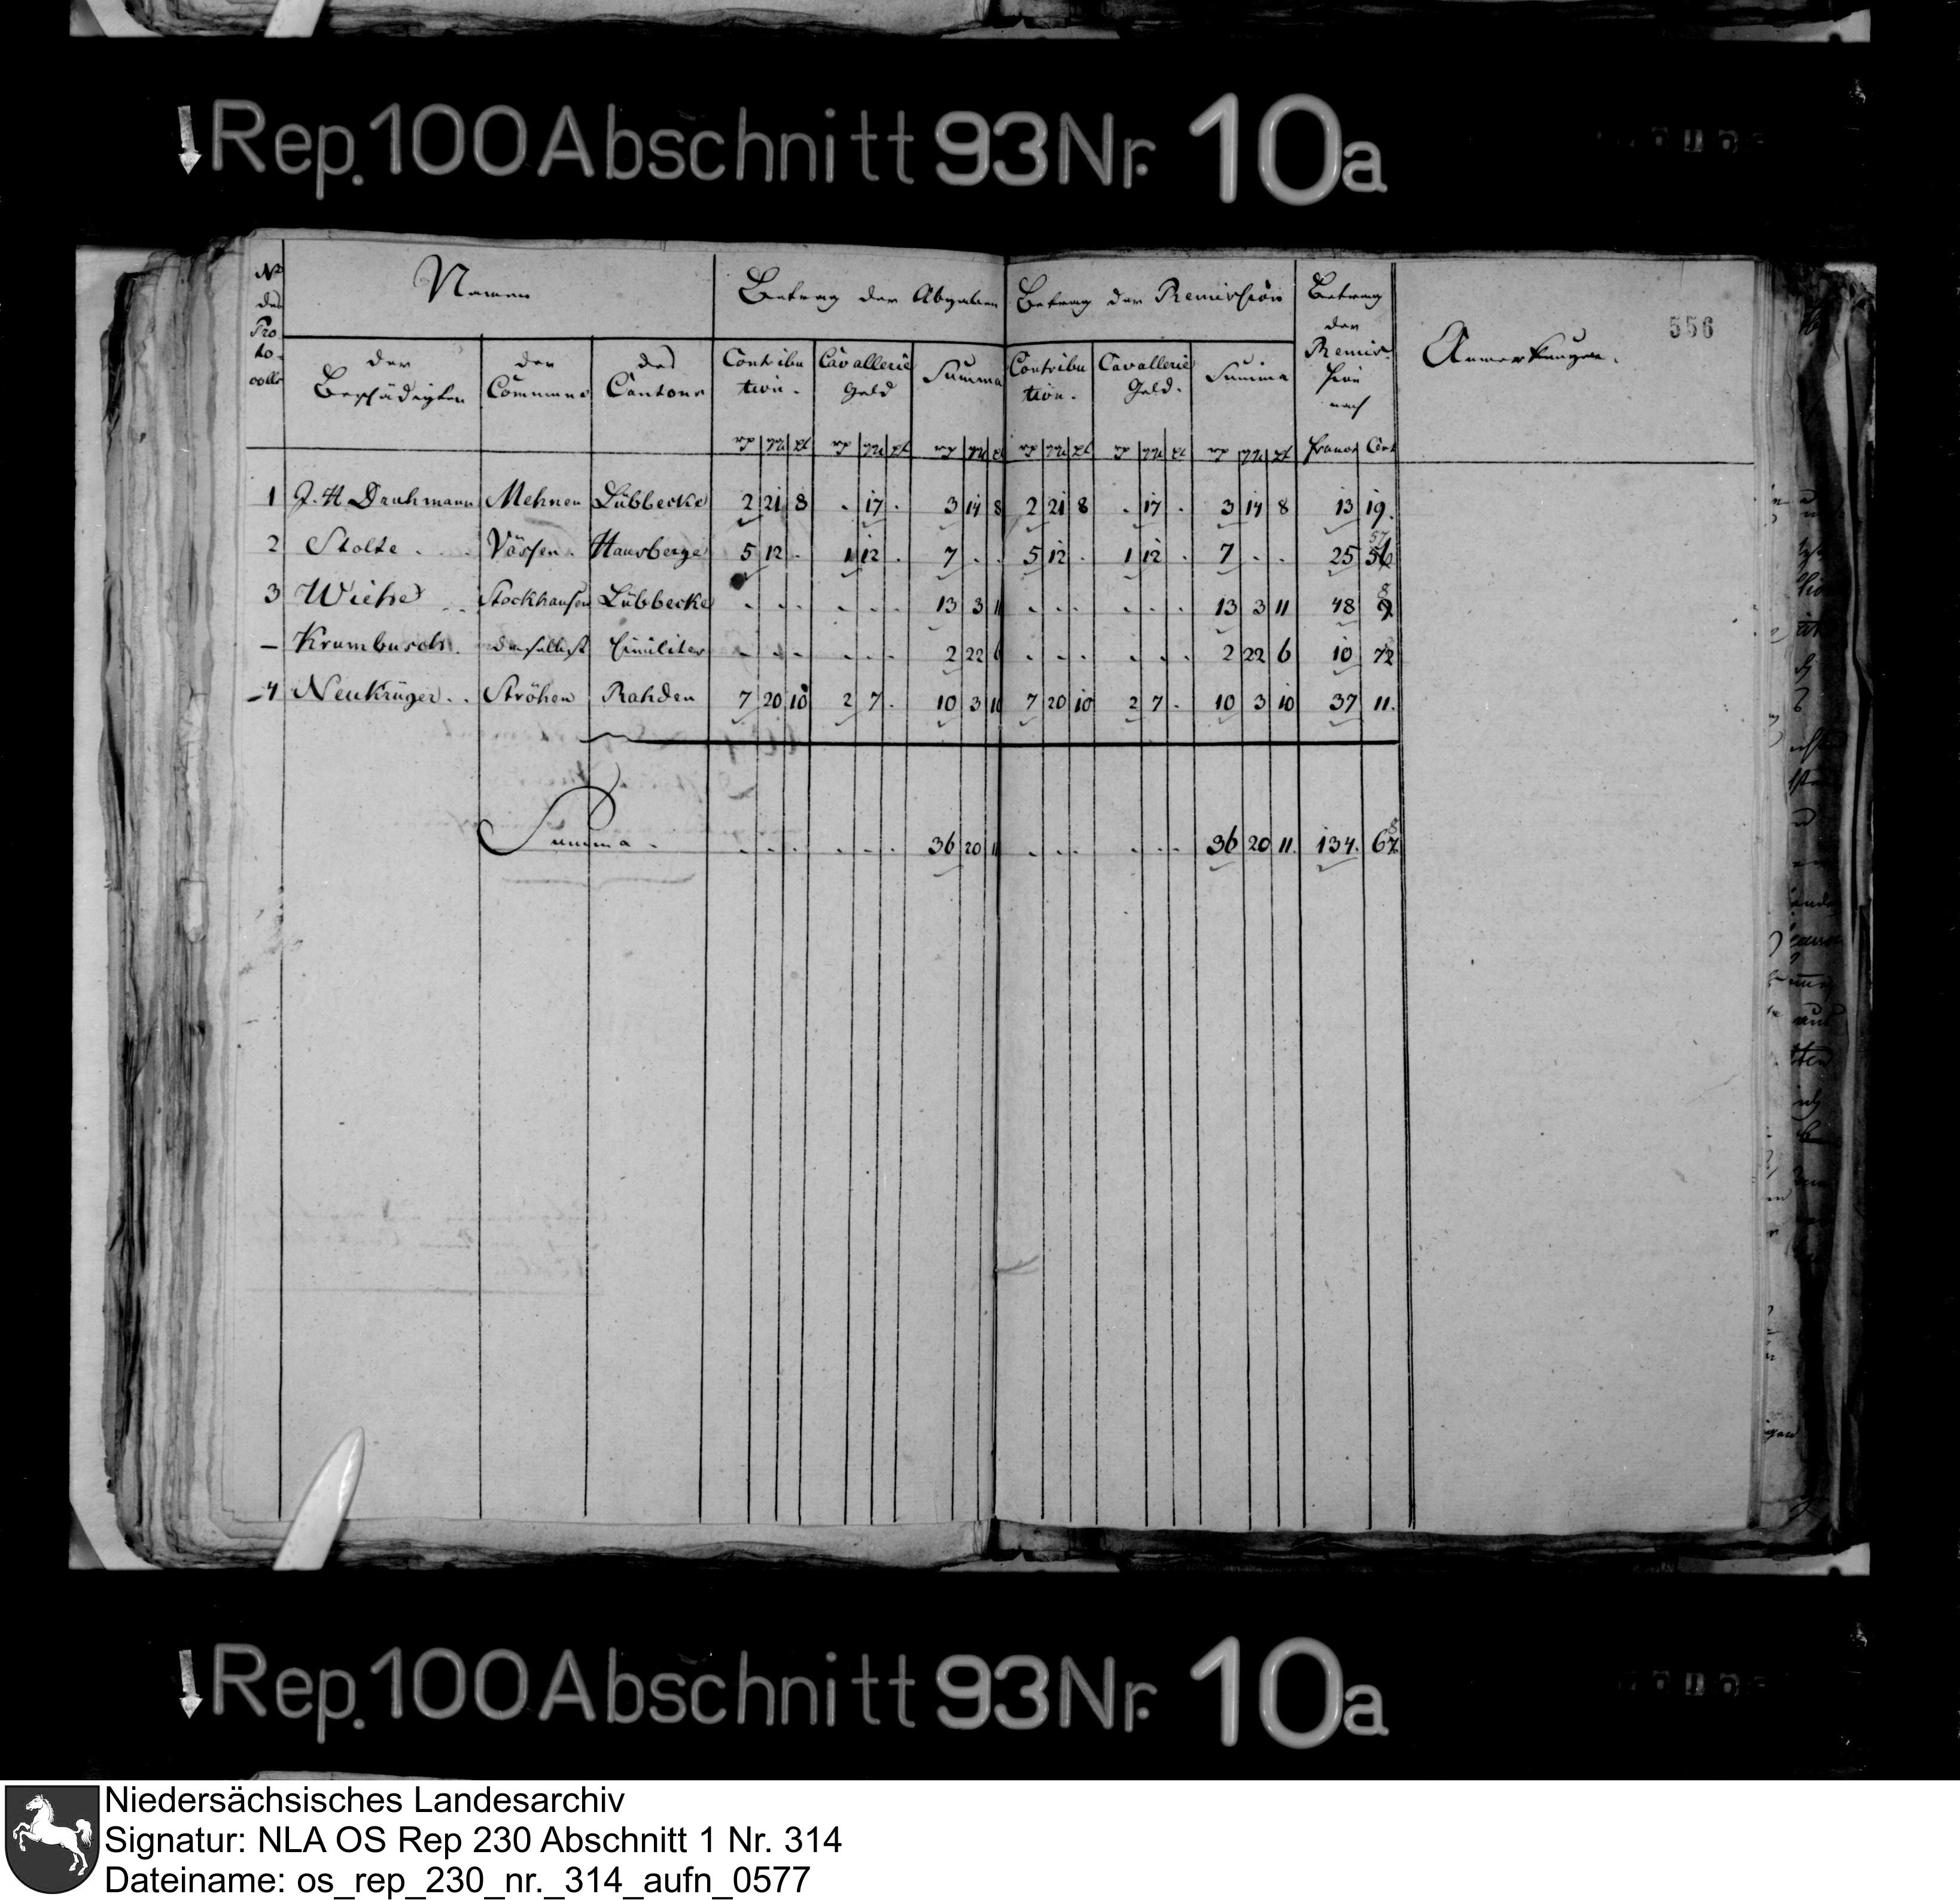 Rep. 100 Abschnitt 93 Nr. 10a
556
No des Protocolls | Namen | Betrag der Abgaben | Betrag der Remission | Betrag der Remission nach | Anmerkungen.
der Beschädigten | der Commune | des Cantons | Contribution. | Cavallerie Geld | Summa | Contribution. | Cavallerie Geld. | Summa | Francs | Cent
1 J. H Druhmann Mehnen Lübbecke 2 21 8 . 17 . 3 14 8 2 21 8 . 17 . 3 14 8 13 19.
2 Stolte . Vössen . Hausberge 5 12 . 1 12 . 7 . . 5 12 . 1 12 . 7 . . 25 57
3 Wiehe Stockhausen Lübbecke . . . . . . 13 3 11 . . . . . . 13 3 11 48 8
– Krumbusch . daselbst similiter . . . . . . 2 22 6 . . . . . . 2 22 6 10 72
4 Neukrüger . . Ströhen Rahden 7 20 10 2 7 . 10 3 10 7 20 10 2 7 . 10 3 10 37 11.
Summa . . . . . . . 36 20 11 . . . . . . 36 20 11. 134. 67
Rep. 100 Abschnitt 93 Nr. 10a
Niedersächsisches Landesarchiv
Signatur: NLA OS Rep 230 Abschnitt 1 Nr. 314
Dateiname: os_rep_230_nr._314_aufn_0577